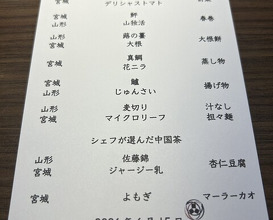 宮城 デリシャストマト
宮城 鮃 春巻
山形 山独活
山形 蕗の薹 大根餅
宮城 大根
宮城 真鯛 蒸し物
花ニラ
宮城 鱸 揚げ物
山形 じゅんさい
山形 麦切り 汁なし
宮城 マイクロリーフ 担々麺
シェフが選んだ中国茶
山形 佐藤錦 杏仁豆腐
宮城 ジャージー乳
宮城 よもぎ マーラーカオ